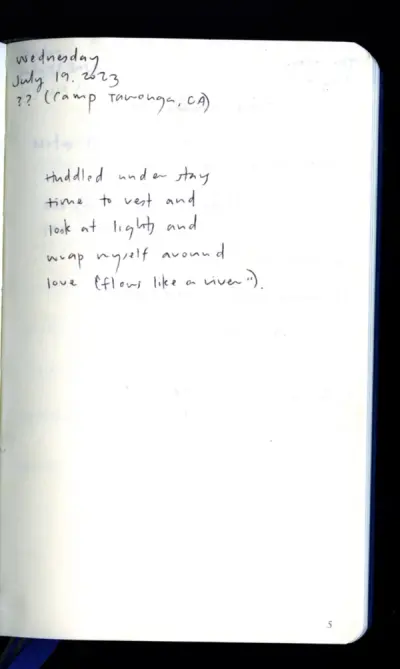 Wednesday
July 19, 2023
?? (Camp Tawonga, CA)
Huddled under stars
time to rest and
look at lights and
wrap myself around
love ("flows like a river").
5